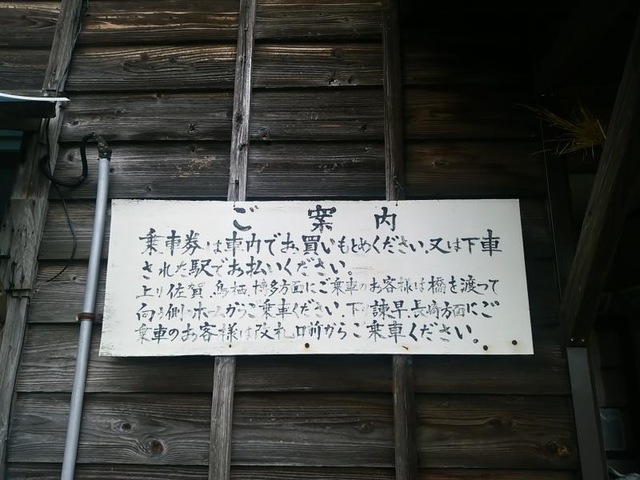 ご案内
乗車券は車内でお買いもとめください。又は下車
された駅でお払いください。
上り佐賀、鳥栖、博多方面にご乗車のお客様は橋を渡って
向う側のホームからご乗車ください。下り諫早、長崎方面にご
乗車のお客様は改札口前からご乗車ください。